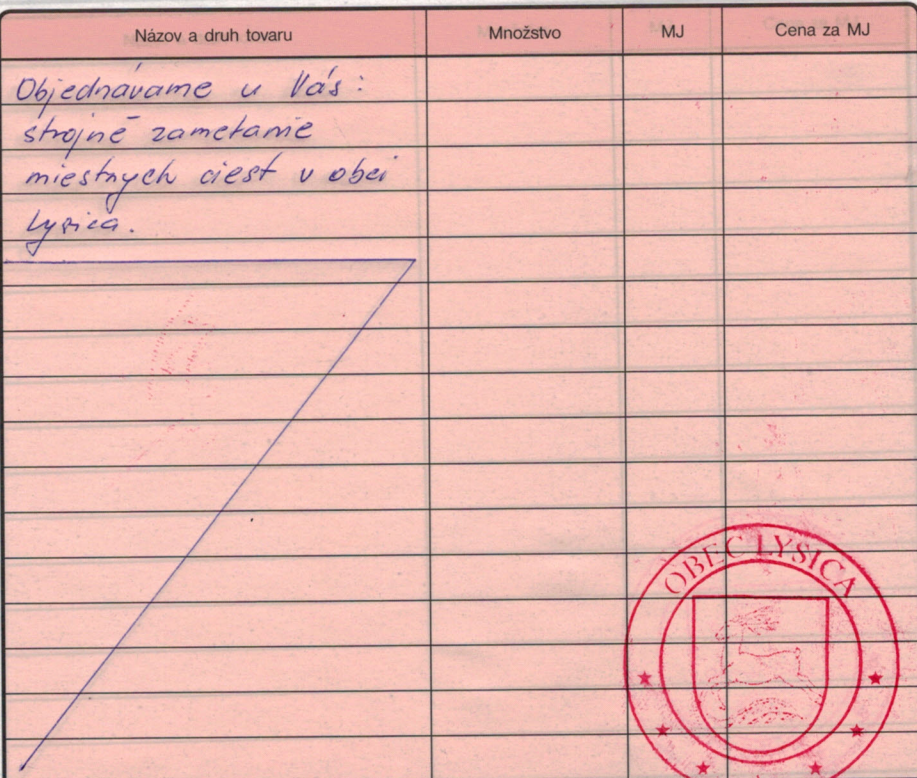 Názov a druh tovaru Množstvo MJ Cena za MJ
Objednávame u Vás:
strojné zametanie
miestnych ciest v obci
Lysica.
OBEC LYSICA